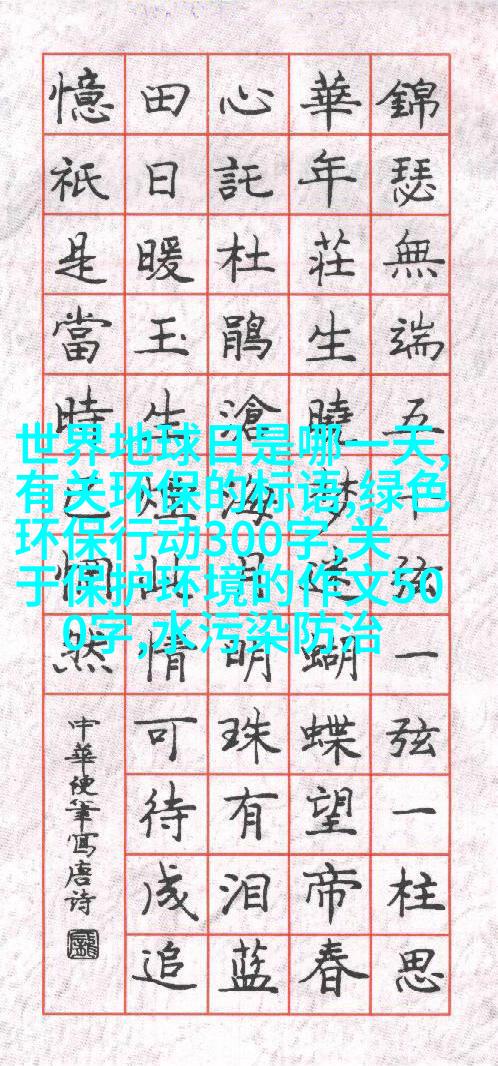 錦瑟無端五十弦一弦一柱思
華年莊生曉梦迷蝴蝶望帝春
心託杜鹃滄海月明珠有泪蓝
田日暖玉生煙此情可待成追
憶祇是當時已惘然
中華硬筆寫唐诗
世界地球日是哪一天,
有关环保的标语,绿色
环保行动300字,关
于保护环境的作文50
0字,水污染防治